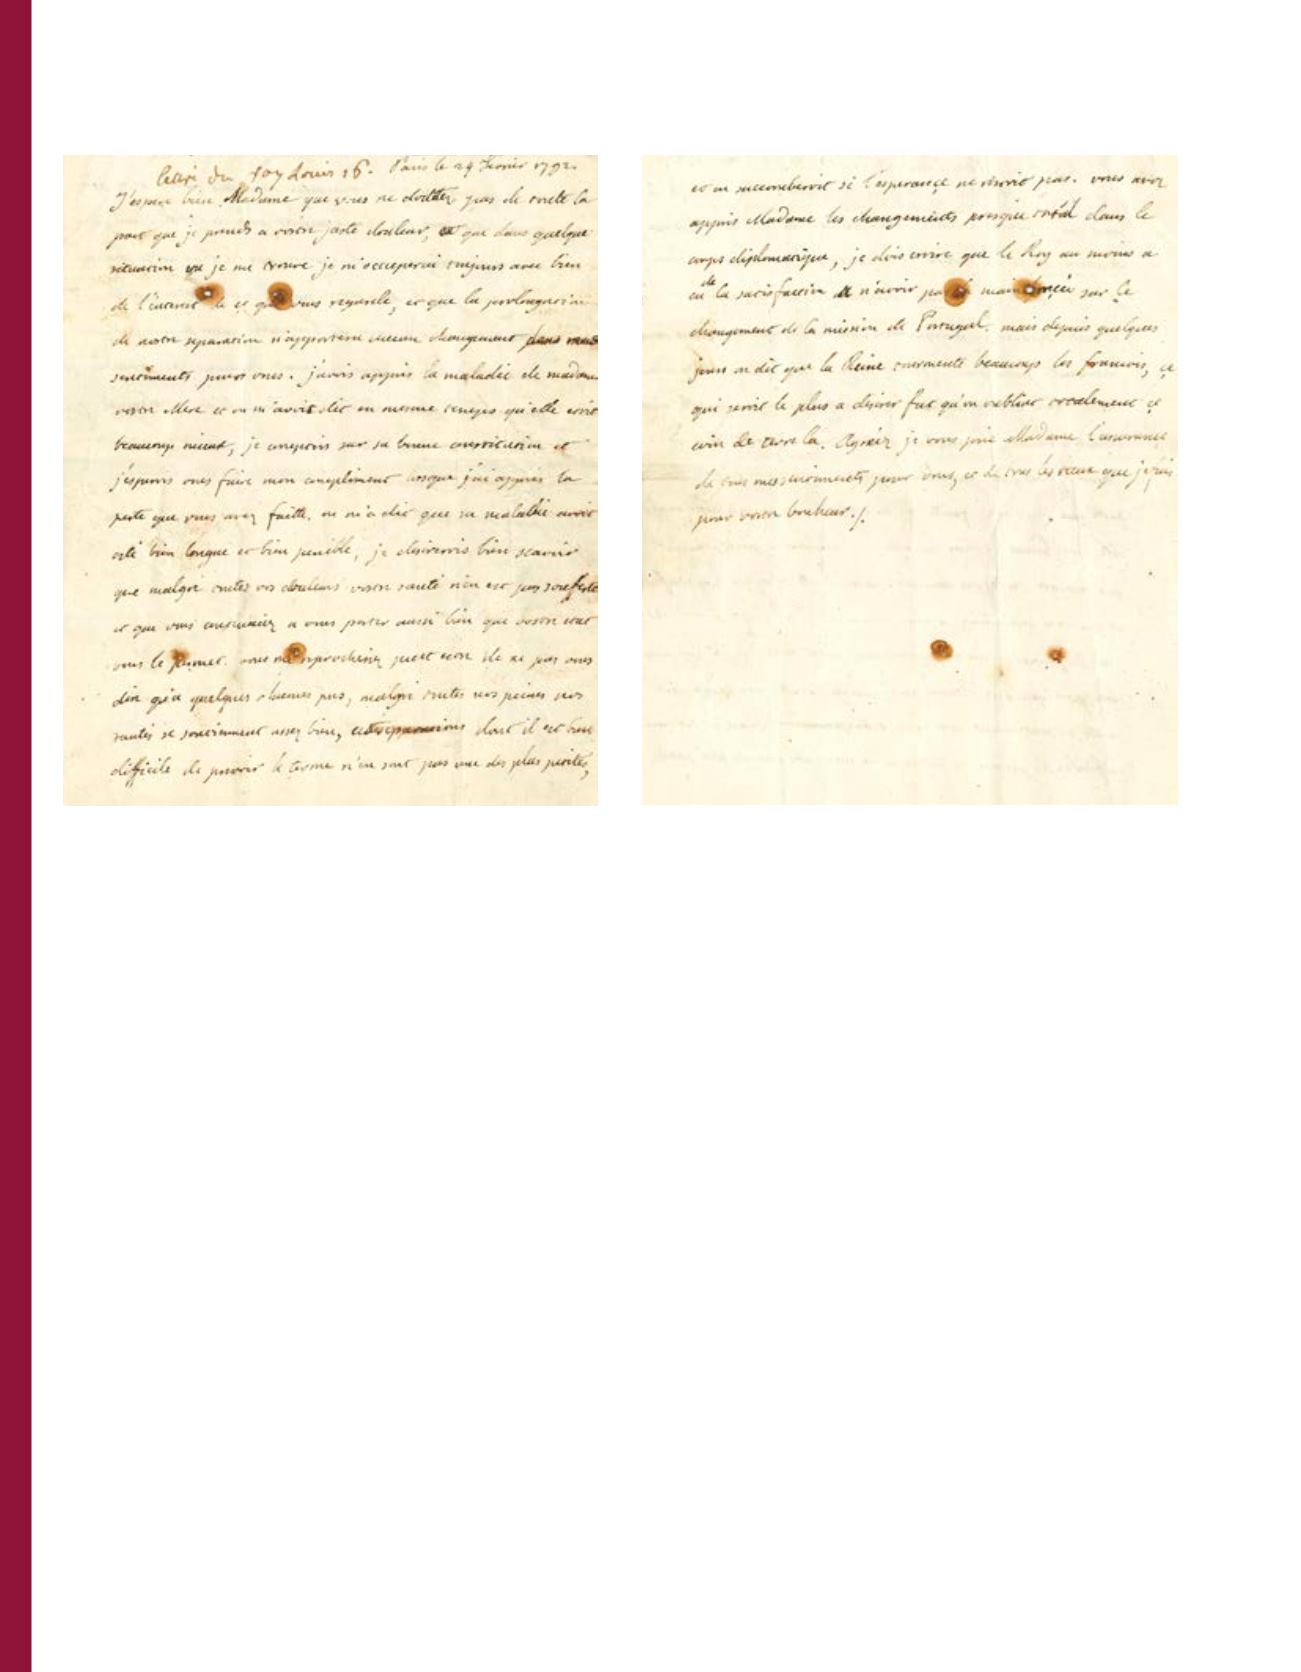 lettre du roy Louis 16. Paris le 29 Fevrier 1792.
J'espere bien Madame que vous ne doutez pas de toute la
part que je prends a vostre juste douleur, et que dans quelque
situation que je me trouve je m'occuperai toujours avec bien
de l'interest de ce qui vous regarde, et que la prolongation
de nostre separation n'apportera aucun changement dans mes
sentiments pour vous. j'avois appris la maladie de madame
vostre Mere et on m'avoit dit en mesme temps qu'elle estoit
beaucoup mieux, je comptois sur sa bonne constitution et
j'esperois vous faire mon compliment lorsque j'ai appris la
perte que vous avez faitte. on m'a dit que sa maladie avoit
esté bien longue et bien penible, je desirerois bien scavoir
que malgré toutes vos douleurs vostre santé n'en est pas
et que vous continuiez a vous porter aussi bien que vostre etat
vous le permet. vous me reprochiriez peut estre de ne pas vous
dire qu'a quelques rhumes pres, malgré toutes nos peines nos
santés se soutiennent assez bien, dont il est bien
difficile de prevoir le terme n'en sont pas une des plus petites,
et on succomberoit si l'esperance ne restoit pas. vous avez
appris Madame les changements presque total dans le
corps diplomatique, je dois croire que le Roy au moins a
eu la satisfaction de n'avoir pas sur le
changement de la mission de Portugal. mais depuis quelques
jours on dit que la Reine tourmente beaucoup les francois, ce
qui seroit le plus a desirer fut qu'on oubliat totalement ce
coin de terre la. Agréez je vous prie Madame l'assurance
de tous mes sentiments pour vous, et de tous les vœux que je fais
pour vostre bonheur./.